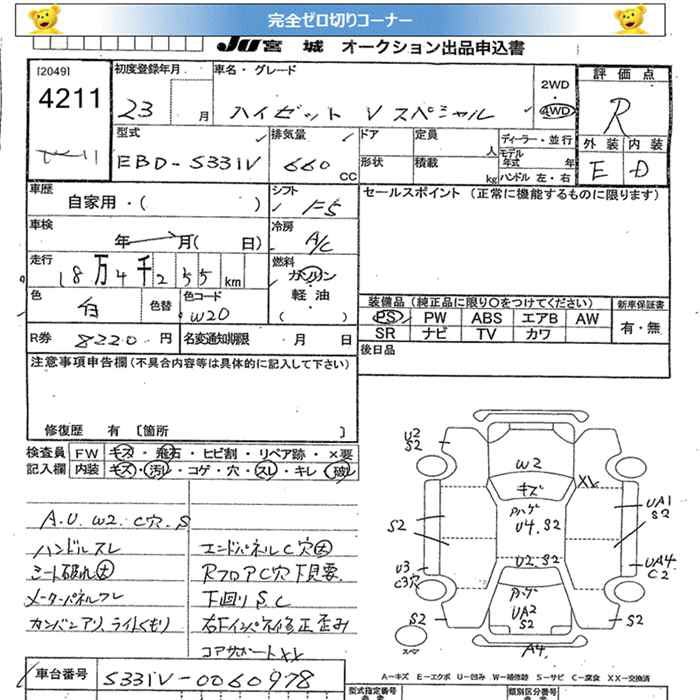 完全ゼロ切りコーナー
JU宮城 オークション出品申込書
[2049]
4211
初度登録年月
23 月
車名・グレード
ハイゼット V スペシャル
2WD
・
4WD
評価点
R
外装 内装
E D
型式
EBD-S331V
排気量
660 CC
ドア
形状
定員
人
積載
kg
ディーラー・並行
モデル年式 年
ハンドル 左・右
車歴
自家用・( )
シフト
F5
セールスポイント (正常に機能するものに限ります)
車検
年 月( 日)
冷房
A/C
走行
18万4千255km
燃料
ガソリン
軽油
( )
色
白
色替
色コード
W20
装備品(純正品に限り○をつけてください)
PS PW ABS エアB AW
SR ナビ TV カワ
新車保証書
有・無
R券 8220 円
名変通知期限 月 日
後日品
注意事項申告欄(不具合内容等は具体的に記入して下さい)
修復歴 有 [箇所 ]
検査員 FW キズ・飛石・ヒビ割・リペア跡・×要
記入欄 内装 キズ・汚レ・コゲ・穴・スレ・キレ・破レ
A.U.W2.C穴.S
ハンドルスレ
シート破れ大
メーターパネルスレ
カンバンアリ、ライトくもり
エンドパネルC穴大
RフロアC穴下見要
下回りS.C
右Fインパネ修正歪み
コアサポートXX
U2
S2
S2
U3
C3穴
S2
W2
キズ
XX
Pハゲ
U4.S2
U2.S2
Pハゲ
UA2
S2
A4
UA1
S2
UA4
C2
S2
スペア
A－キズ E－エクボ U－凹み W－補修跡 S－サビ C－腐食 XX－交換済
車台番号 S331V-0060978
型式指定番号
類別区分番号